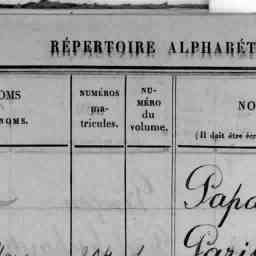 RÉPERTOIRE ALPHABÉT
OMS
NOMS.
NUMÉROS
ma-
tricules.
NU-
MÉRO
du
volume.
NO
(Il doit être écr
Papa
Pari